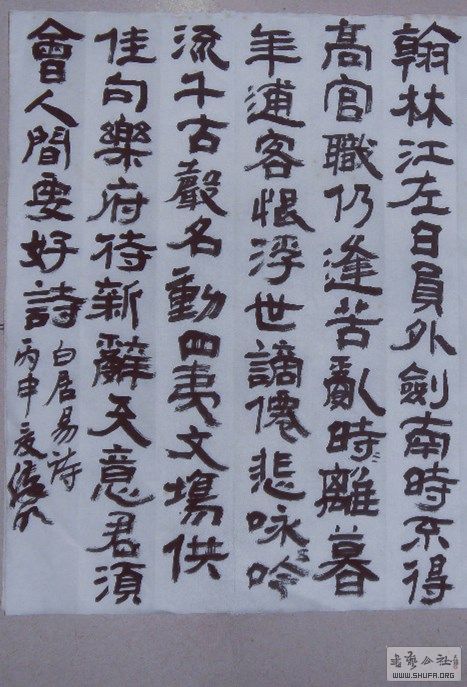 翰林江左日員外劍南時不得
高官職仍逢苦亂時離暮
年逋客恨浮世謫僊悲咏吟
流千古聲名動四夷文場供
佳句樂府待新辭天意君須
會人間要好詩
白居易詩
丙申夏
書藝公社
WWW.SHUFA.ORG